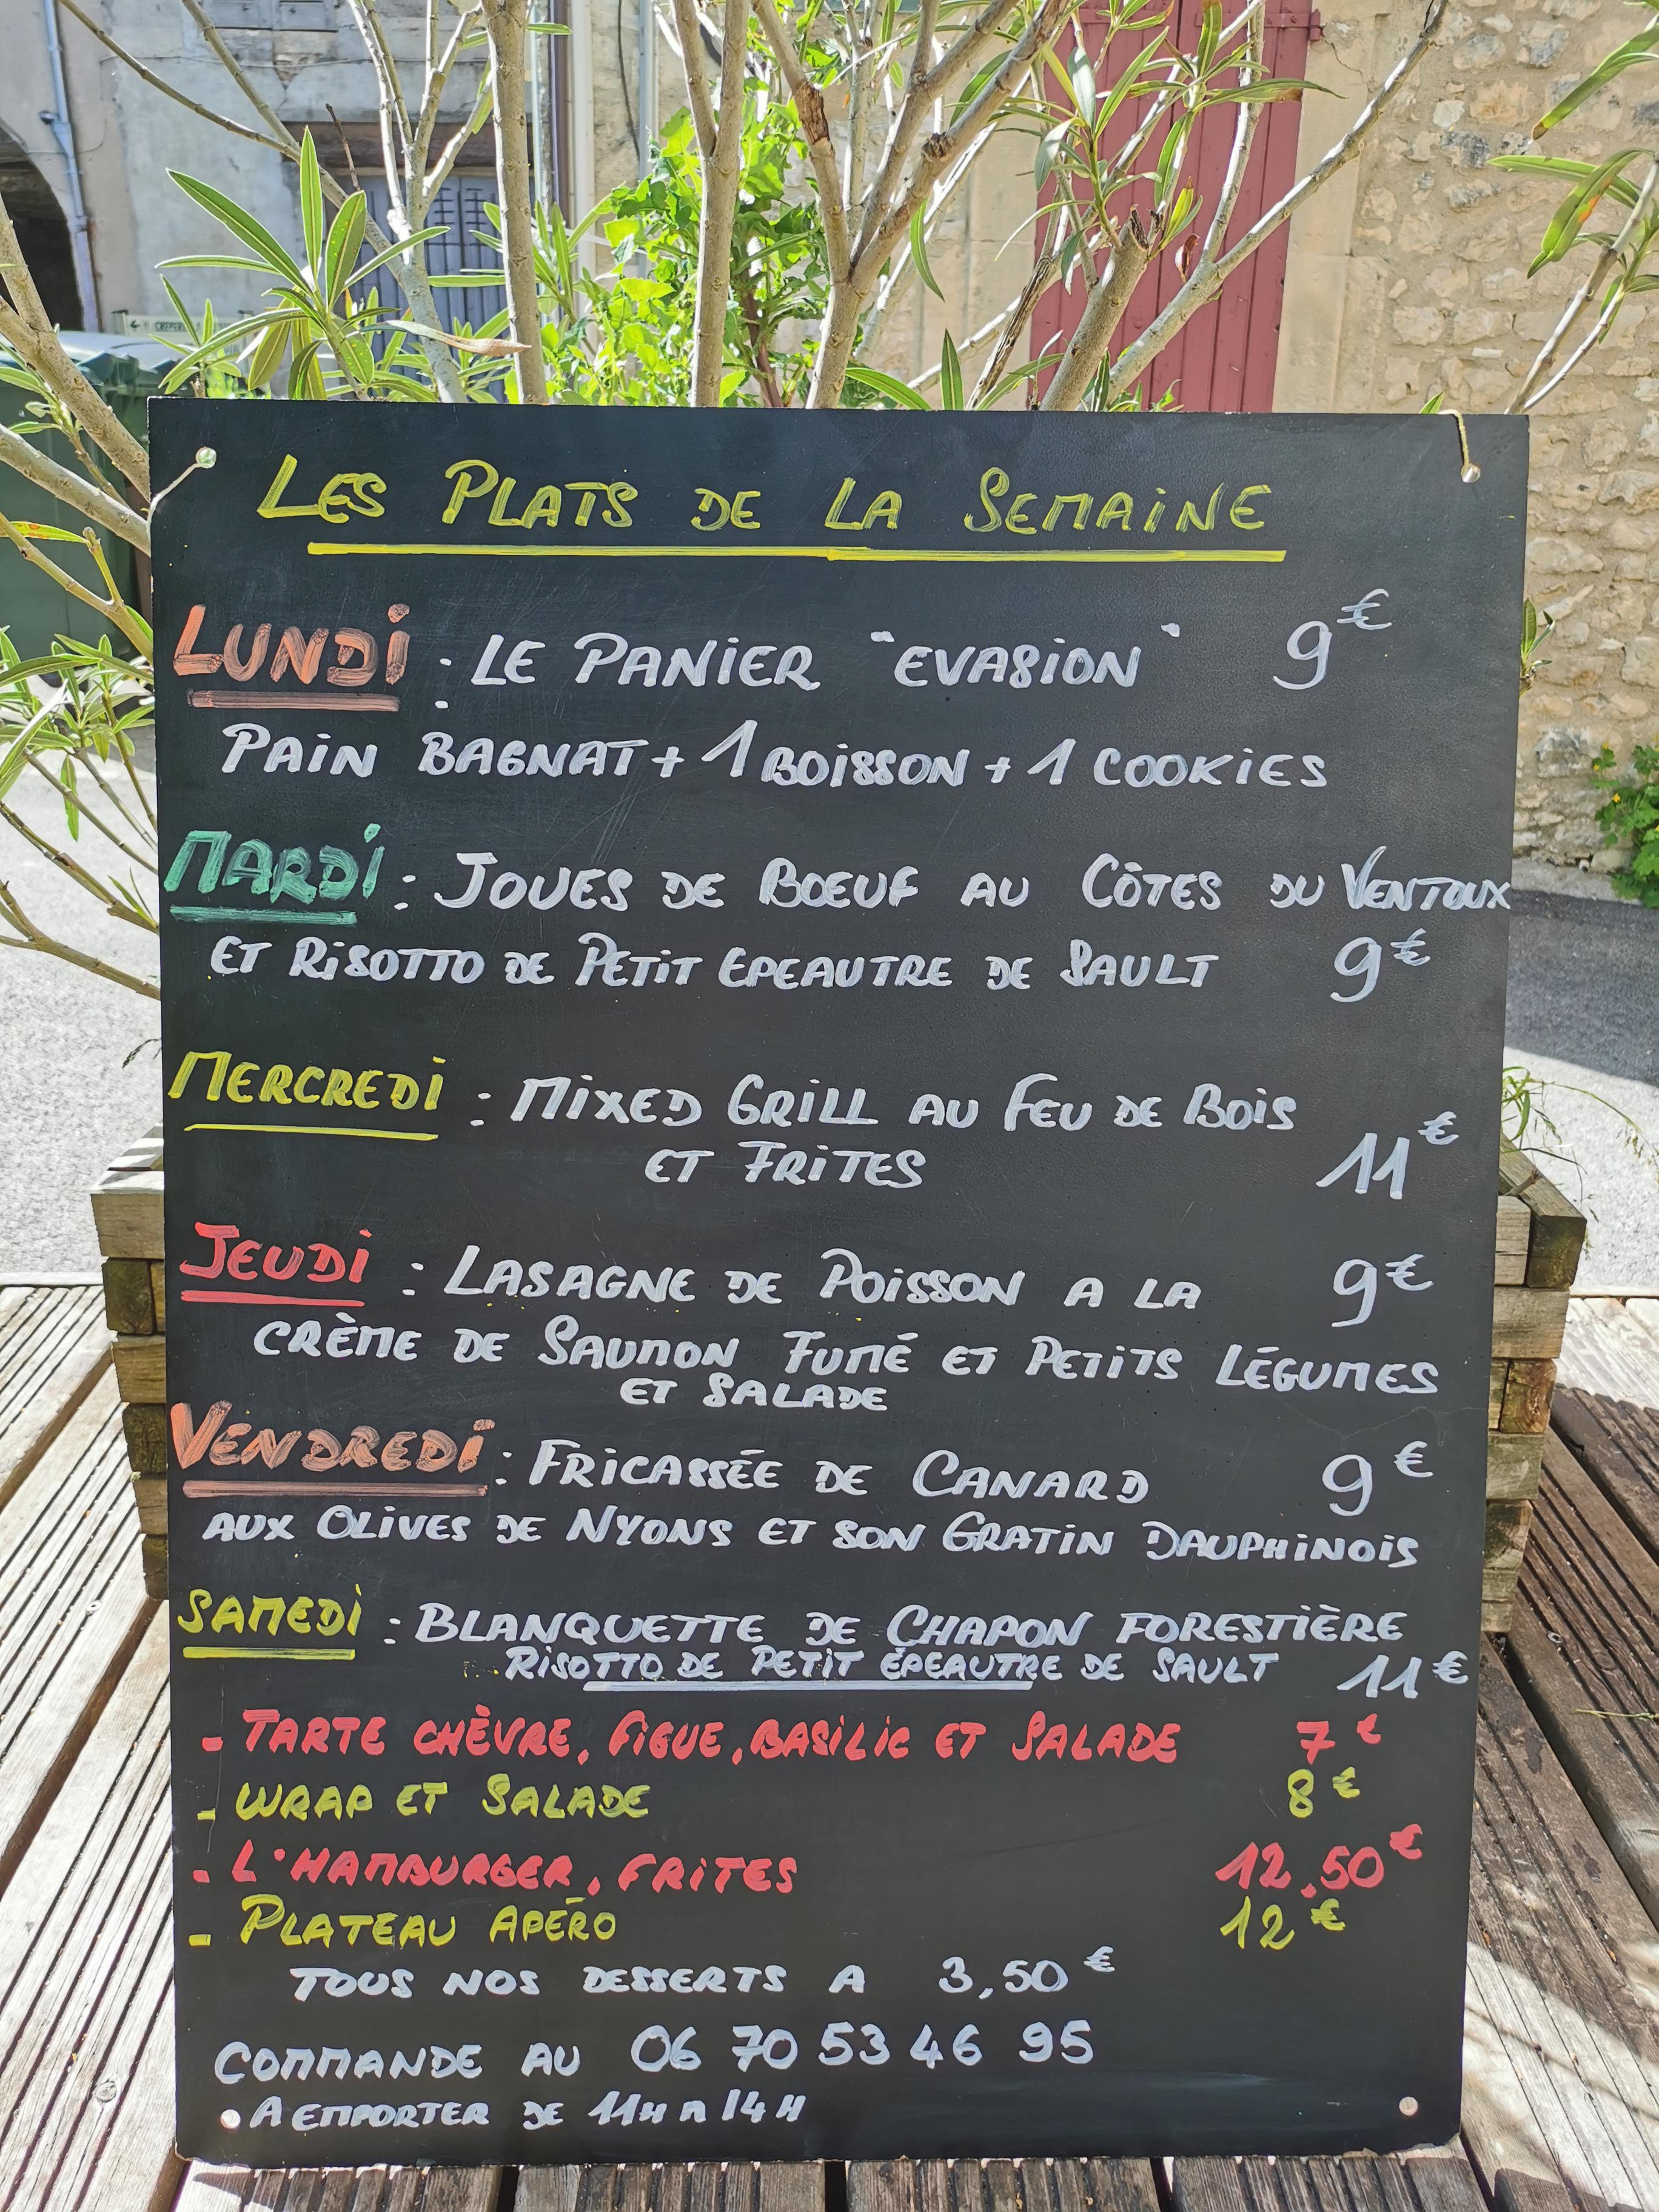 LES PLATS DE LA SEMAINE
LUNDI : LE PANIER "EVASION" 9€
PAIN BAGNAT + 1 BOISSON + 1 COOKIES
MARDI : JOUES DE BOEUF AU CÔTES DU VENTOUX
ET RISOTTO DE PETIT EPEAUTRE DE SAULT 9€
MERCREDI : MIXED GRILL AU FEU DE BOIS
ET FRITES 11€
JEUDI : LASAGNE DE POISSON A LA 9€
CRÈME DE SAUMON FUMÉ ET PETITS LÉGUMES
ET SALADE
VENDREDI : FRICASSÉE DE CANARD 9€
AUX OLIVES DE NYONS ET SON GRATIN DAUPHINOIS
SAMEDI : BLANQUETTE DE CHAPON FORESTIÈRE
RISOTTO DE PETIT ÉPEAUTRE DE SAULT 11€
- TARTE CHÈVRE, FIGUE, BASILIC ET SALADE 7€
- WRAP ET SALADE 8€
- L'HAMBURGER, FRITES 12,50€
- PLATEAU APÉRO 12€
TOUS NOS DESSERTS A 3,50€
COMMANDE AU 06 70 53 46 95
• A EMPORTER DE 11H A 14H